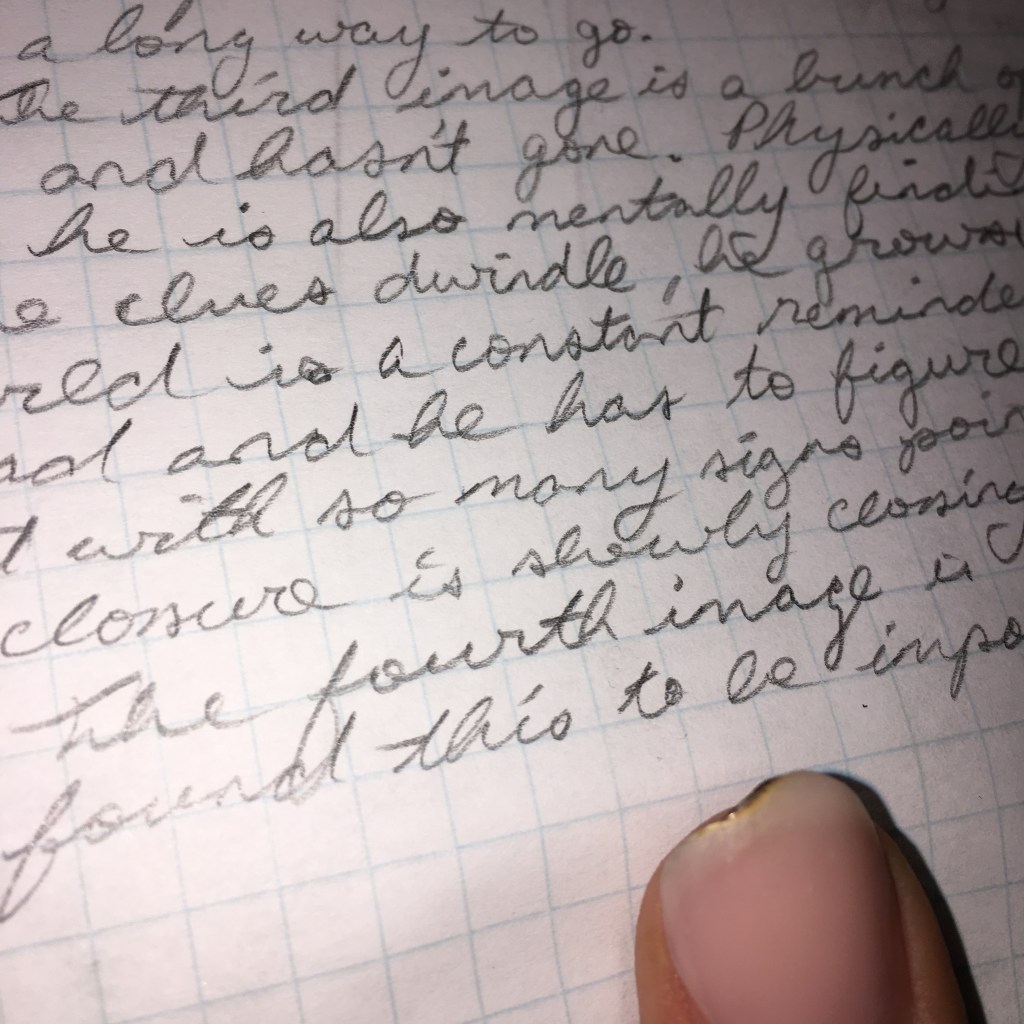 a long way to go.
The third image is a bunch
and hasn't gone. Physically
he is also mentally
clues dwindle, he grows
is a constant
and he has to figure
with so many signs
closure is slowly closing
The fourth image is
found this to be